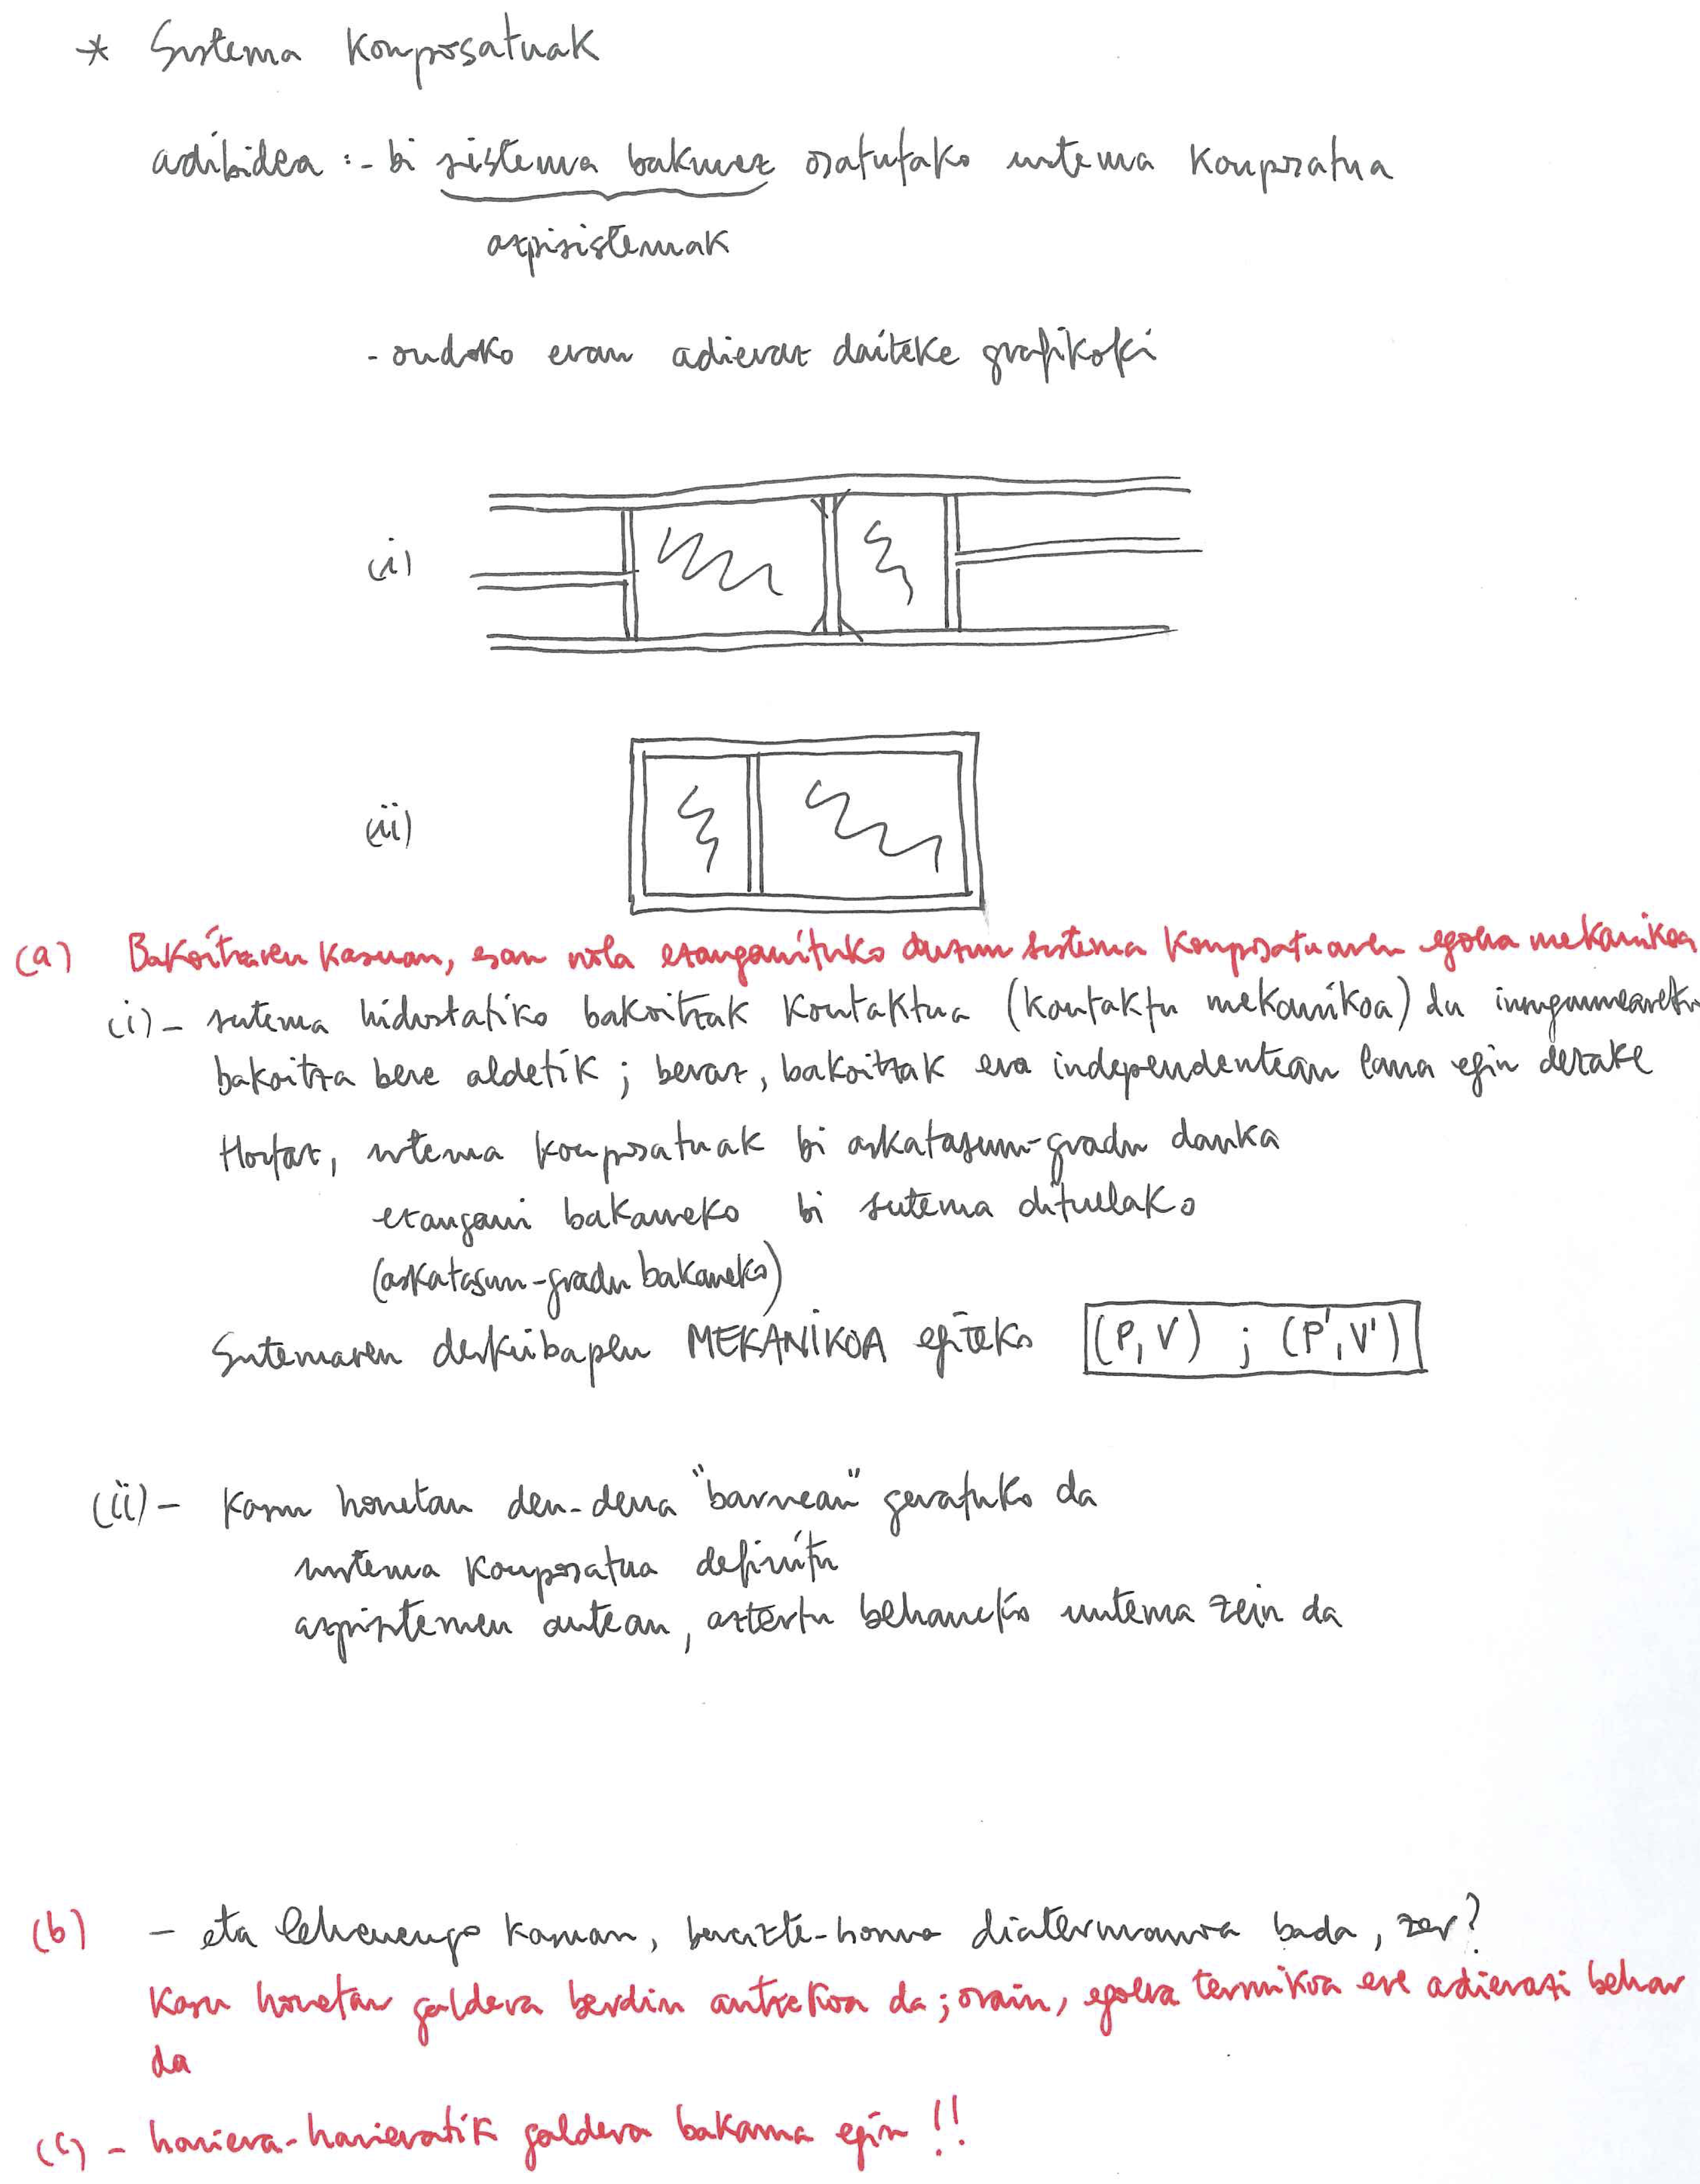 * Sistema Konposatuak
adibidea :- bi sistema bakunez osatutako sistema Konposatua
azpisistemak
- ondoko eran adieraz daiteke grafikoki
(i)
(ii)
(a) Bakoitzaren Kasuan, esan nola ezaugarrituko duzun sistema Konposatuaren egoera mekanikoa
(i) - sistema hidrostatiko bakoitzak Kontaktua (Kontaktu mekanikoa) du ingurunearekin
bakoitza bere aldetik ; beraz, bakoitzak era independentean lana egin dezake
Hortaz, sistema konposatuak bi askatasun-gradu dauka
ezaugarri bakarreko bi sistema dituelako
(askatasun-gradu bakarreko)
Sistemaren deskribapen MEKANIKOA egiteko (P, V) ; (P', V')
(ii) - Kasu honetan den-dena "barnean" geratuko da
sistema Konposatua definitu
azpisistemen artean, aztertu beharreko sistema zein da
(b) - eta lehenengo Kasuan, bereizte-horma diatermanoa bada, zer?
Kasu honetan galdera berdin antzekoa da ; orain, egoera termikoa ere adierazi behar
da
(c) - hasiera-hasieratik galdera bakarra egin !!